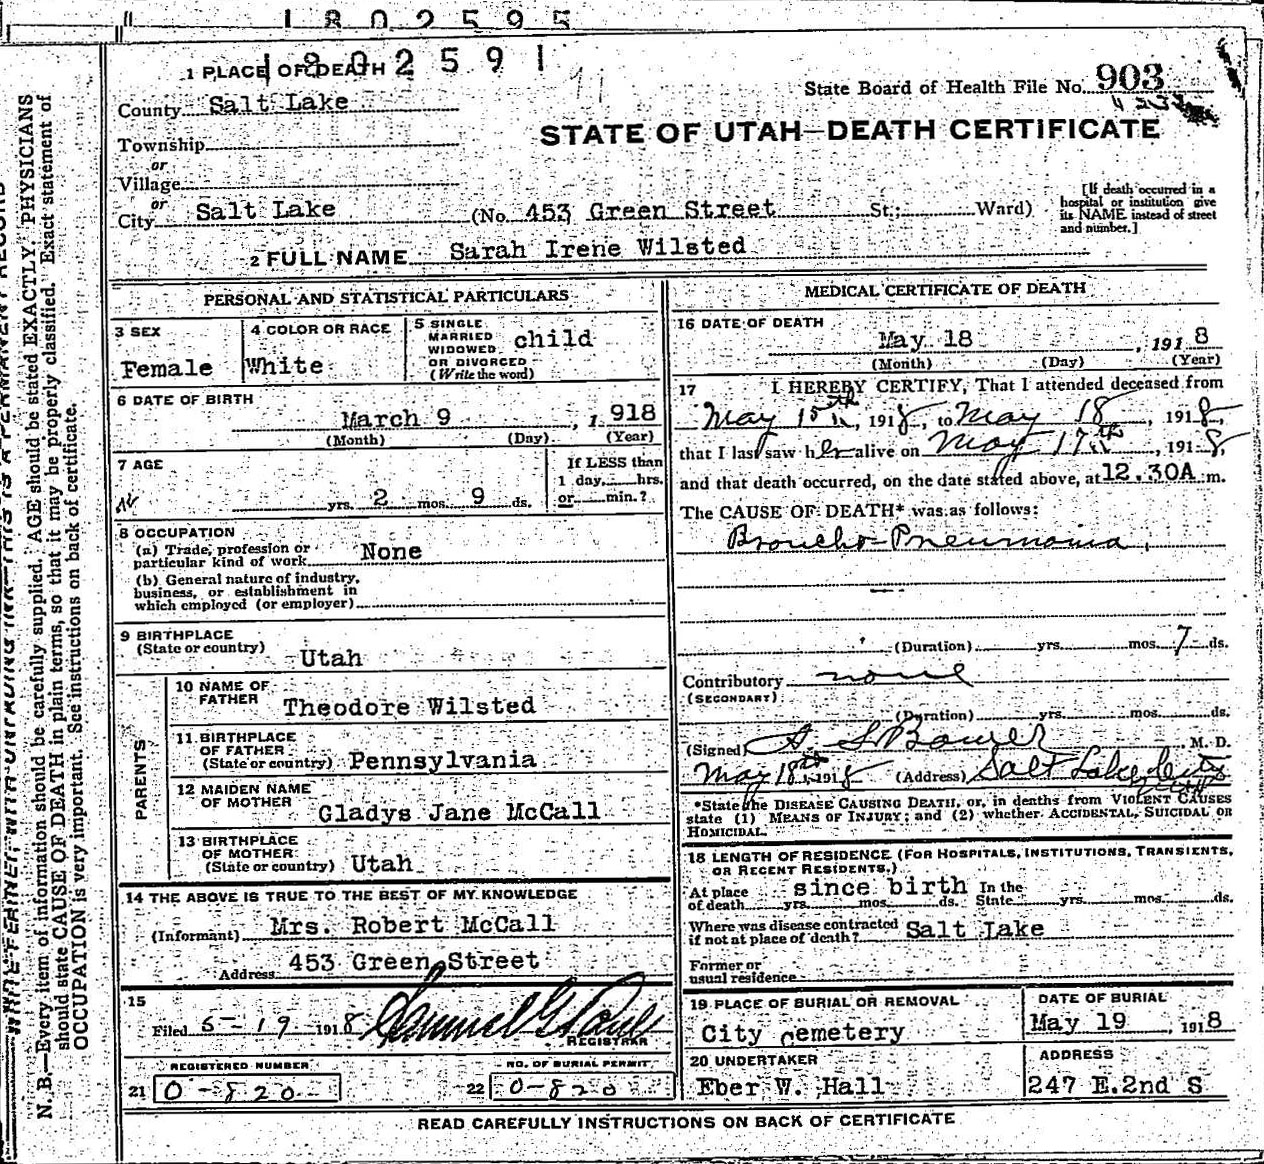 1802595
1802591
1 PLACE OF DEATH
County Salt Lake
State Board of Health File No. 903
STATE OF UTAH—DEATH CERTIFICATE
Township
or
Village
or
City Salt Lake (No. 453 Green Street St.; Ward)
[If death occurred in a
hospital or institution give
its NAME instead of street
and number.]
2 FULL NAME Sarah Irene Wilsted
PERSONAL AND STATISTICAL PARTICULARS
3 SEX
Female
4 COLOR OR RACE
White
5 SINGLE
MARRIED
WIDOWED
OR DIVORCED
(Write the word)
child
6 DATE OF BIRTH
March 9, 1918
(Month) (Day) (Year)
7 AGE
yrs. 2 mos. 9 ds.
If LESS than
1 day, hrs.
or min.?
8 OCCUPATION
(a) Trade, profession or
particular kind of work None
(b) General nature of industry,
business, or establishment in
which employed (or employer)
9 BIRTHPLACE
(State or country) Utah
PARENTS
10 NAME OF
FATHER Theodore Wilsted
11 BIRTHPLACE
OF FATHER
(State or country) Pennsylvania
12 MAIDEN NAME
OF MOTHER Gladys Jane McCall
13 BIRTHPLACE
OF MOTHER
(State or country) Utah
14 THE ABOVE IS TRUE TO THE BEST OF MY KNOWLEDGE
(Informant) Mrs. Robert McCall
Address 453 Green Street
15
Filed 5-19 1918 Samuel G Paul
REGISTRAR
REGISTERED NUMBER
21 0-820
NO. OF BURIAL PERMIT
22 0-820
MEDICAL CERTIFICATE OF DEATH
16 DATE OF DEATH
May 18, 1918
(Month) (Day) (Year)
17 I HEREBY CERTIFY, That I attended deceased from
May 15th, 1918, to May 18, 1918,
that I last saw her alive on May 17th, 1918,
and that death occurred, on the date stated above, at 12.30A m.
The CAUSE OF DEATH* was as follows:
Broncho-Pneumonia.
(Duration) yrs. mos. 7 ds.
Contributory none
(SECONDARY)
(Duration) yrs. mos. ds.
(Signed) A. S. Bower M. D.
May 18th, 1918 (Address) Salt Lake City
*State the DISEASE CAUSING DEATH, or, in deaths from VIOLENT CAUSES
state (1) MEANS OF INJURY; and (2) whether ACCIDENTAL, SUICIDAL OR
HOMICIDAL.
18 LENGTH OF RESIDENCE (FOR HOSPITALS, INSTITUTIONS, TRANSIENTS,
OR RECENT RESIDENTS.)
At place since birth In the
of death yrs. mos. ds. State yrs. mos. ds.
Where was disease contracted
if not at place of death? Salt Lake
Former or
usual residence
19 PLACE OF BURIAL OR REMOVAL
City Cemetery
DATE OF BURIAL
May 19, 1918
20 UNDERTAKER
Eber W. Hall
ADDRESS
247 E.2nd S
READ CAREFULLY INSTRUCTIONS ON BACK OF CERTIFICATE
WRITE PLAINLY, WITH UNFADING INK—THIS IS A PERMANENT RECORD
N. B.—Every item of information should be carefully supplied. AGE should be stated EXACTLY. PHYSICIANS
should state CAUSE OF DEATH in plain terms, so that it may be properly classified. Exact statement of
OCCUPATION is very important. See instructions on back of certificate.